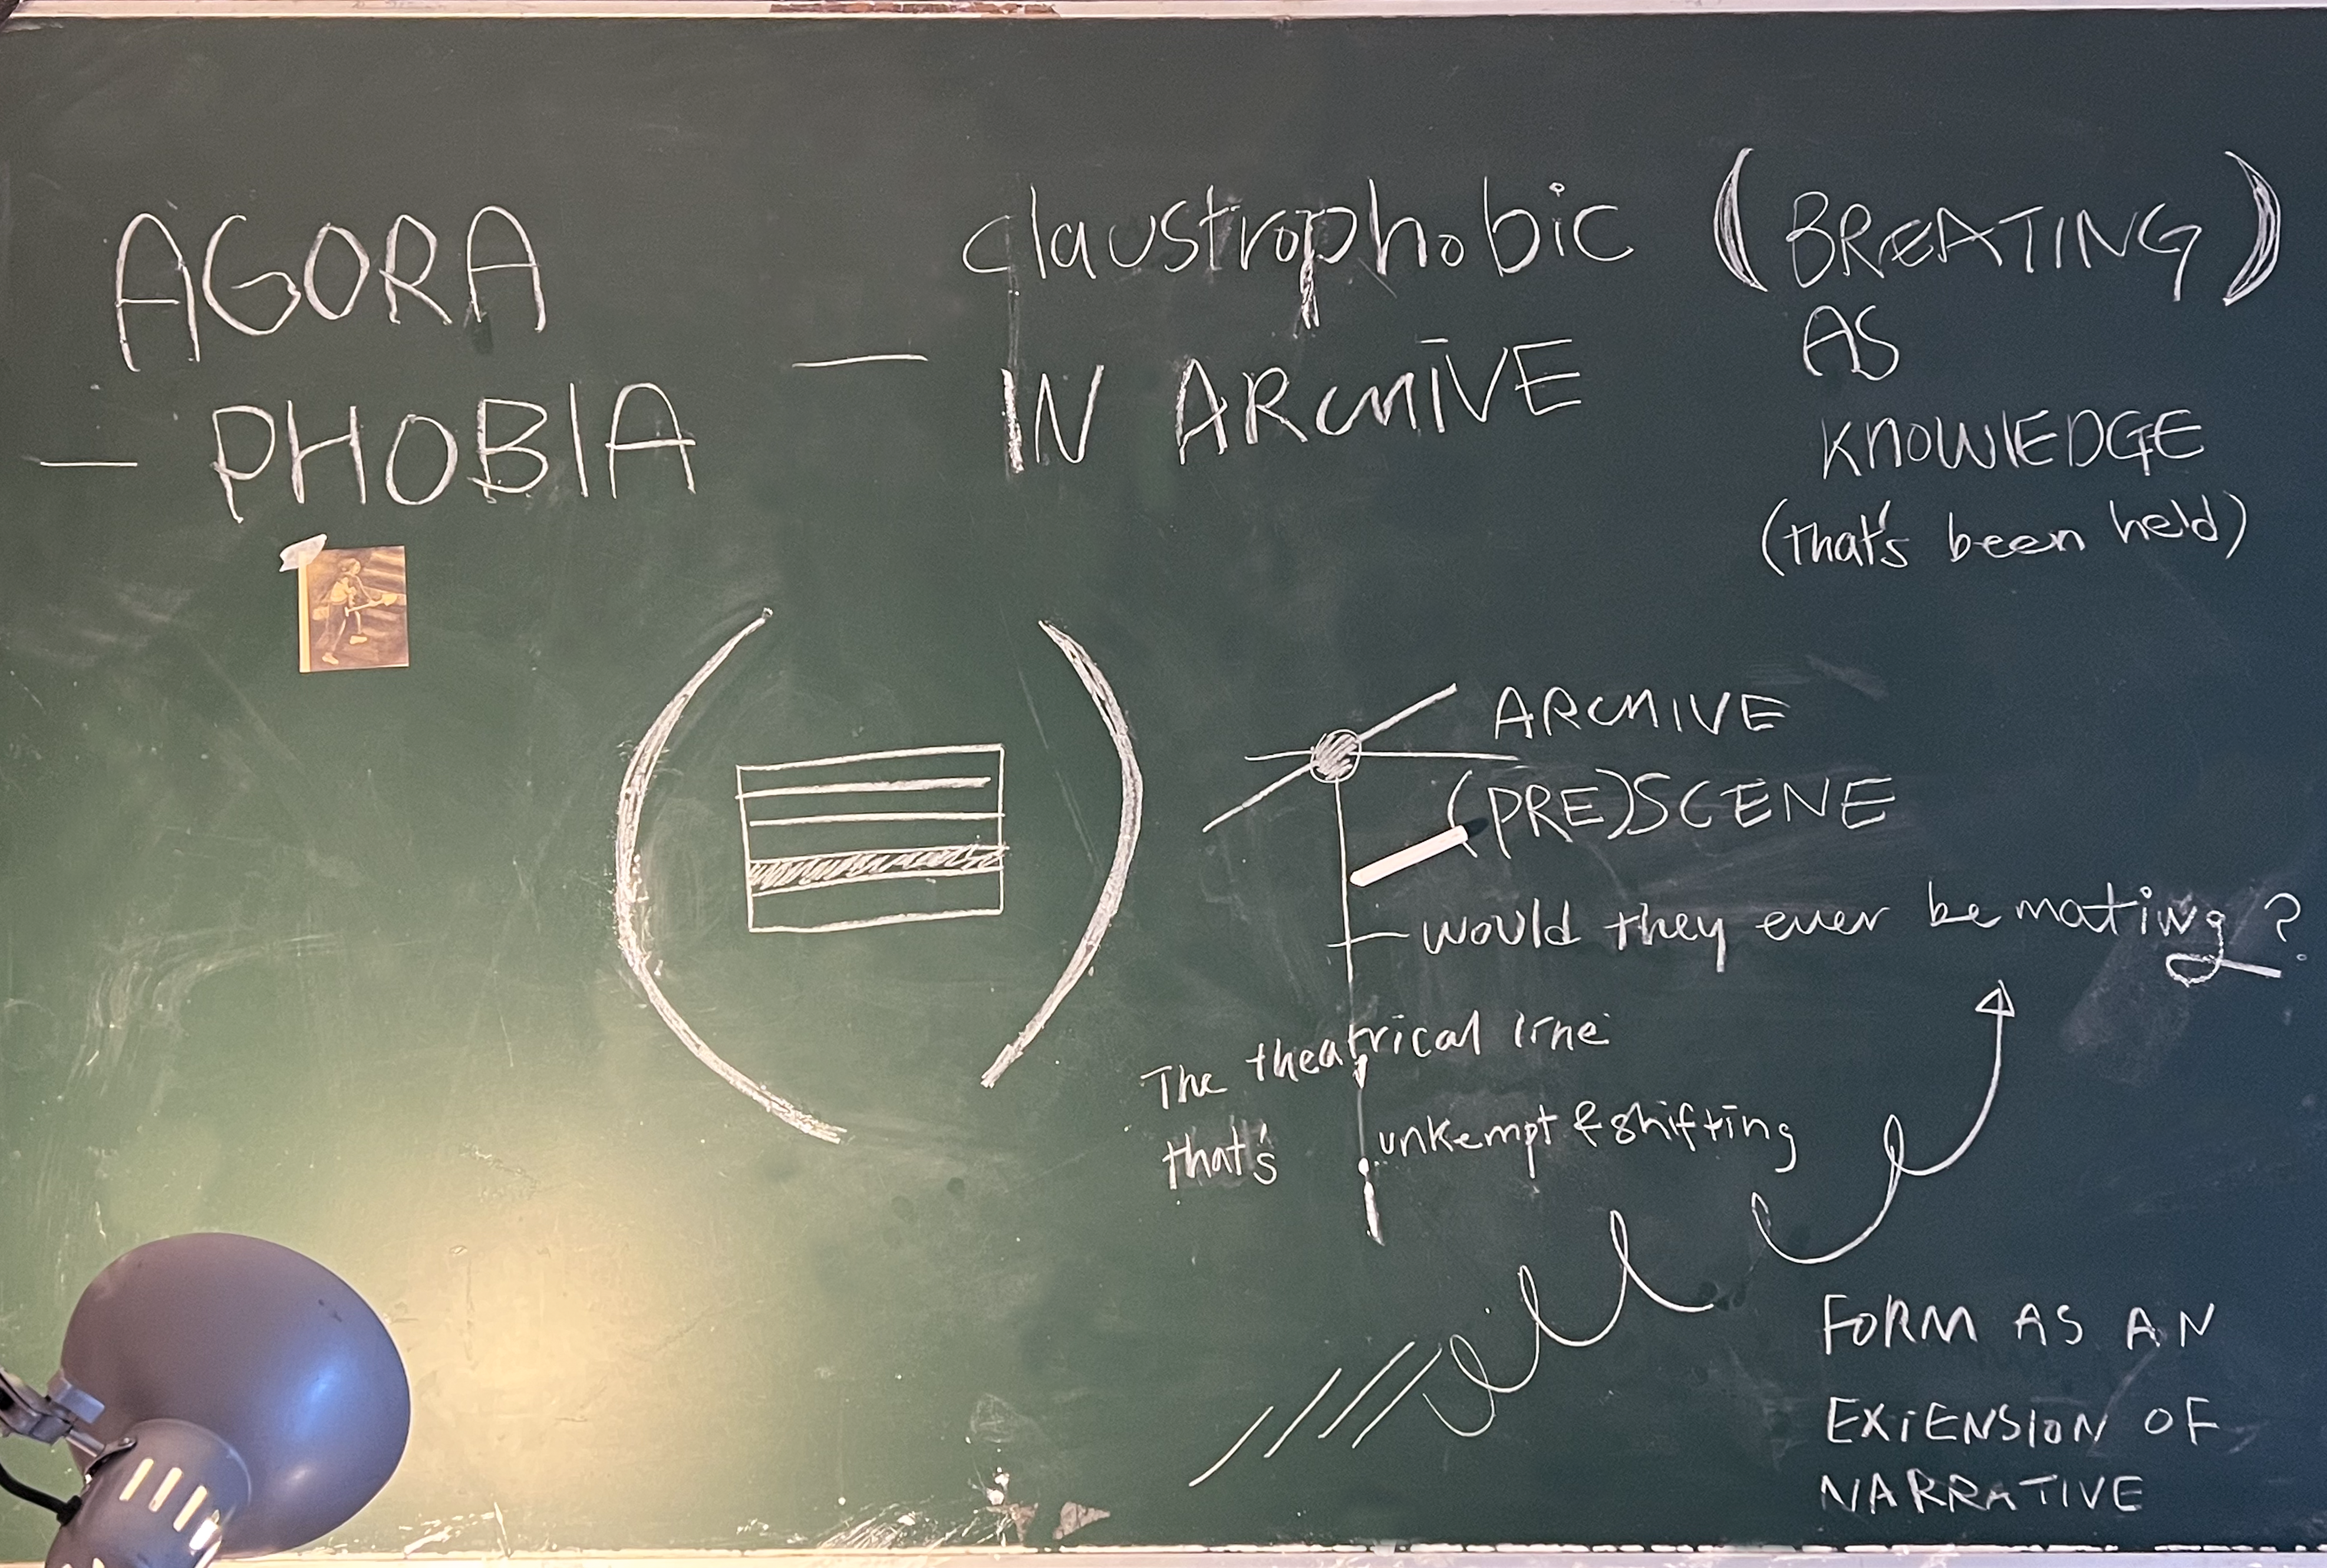 AGORA
— PHOBIA
— claustrophobic
IN ARCHIVE
(BREATING)
AS
KNOWLEDGE
(that's been held)
ARCHIVE
(PRE)SCENE
— would they ever be mating?
The theatrical line
that's unkempt & shifting
FORM AS AN
EXTENSION OF
NARRATIVE